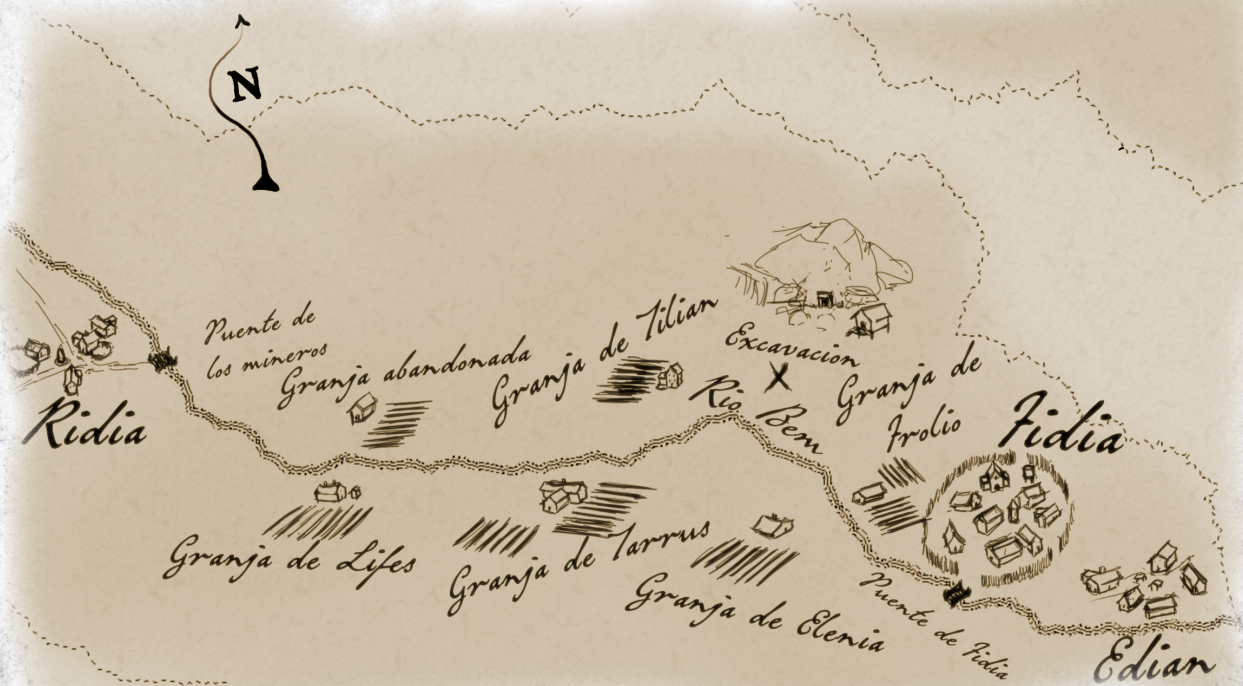 N
Puente de
los mineros
Ridia
Granja abandonada
Granja de Tilian
Excavacion
X
Rio Bem
Granja de
Frolio
Fidia
Granja de Lifes
Granja de Tarrus
Granja de Elenia
Puente de Fidia
Edian